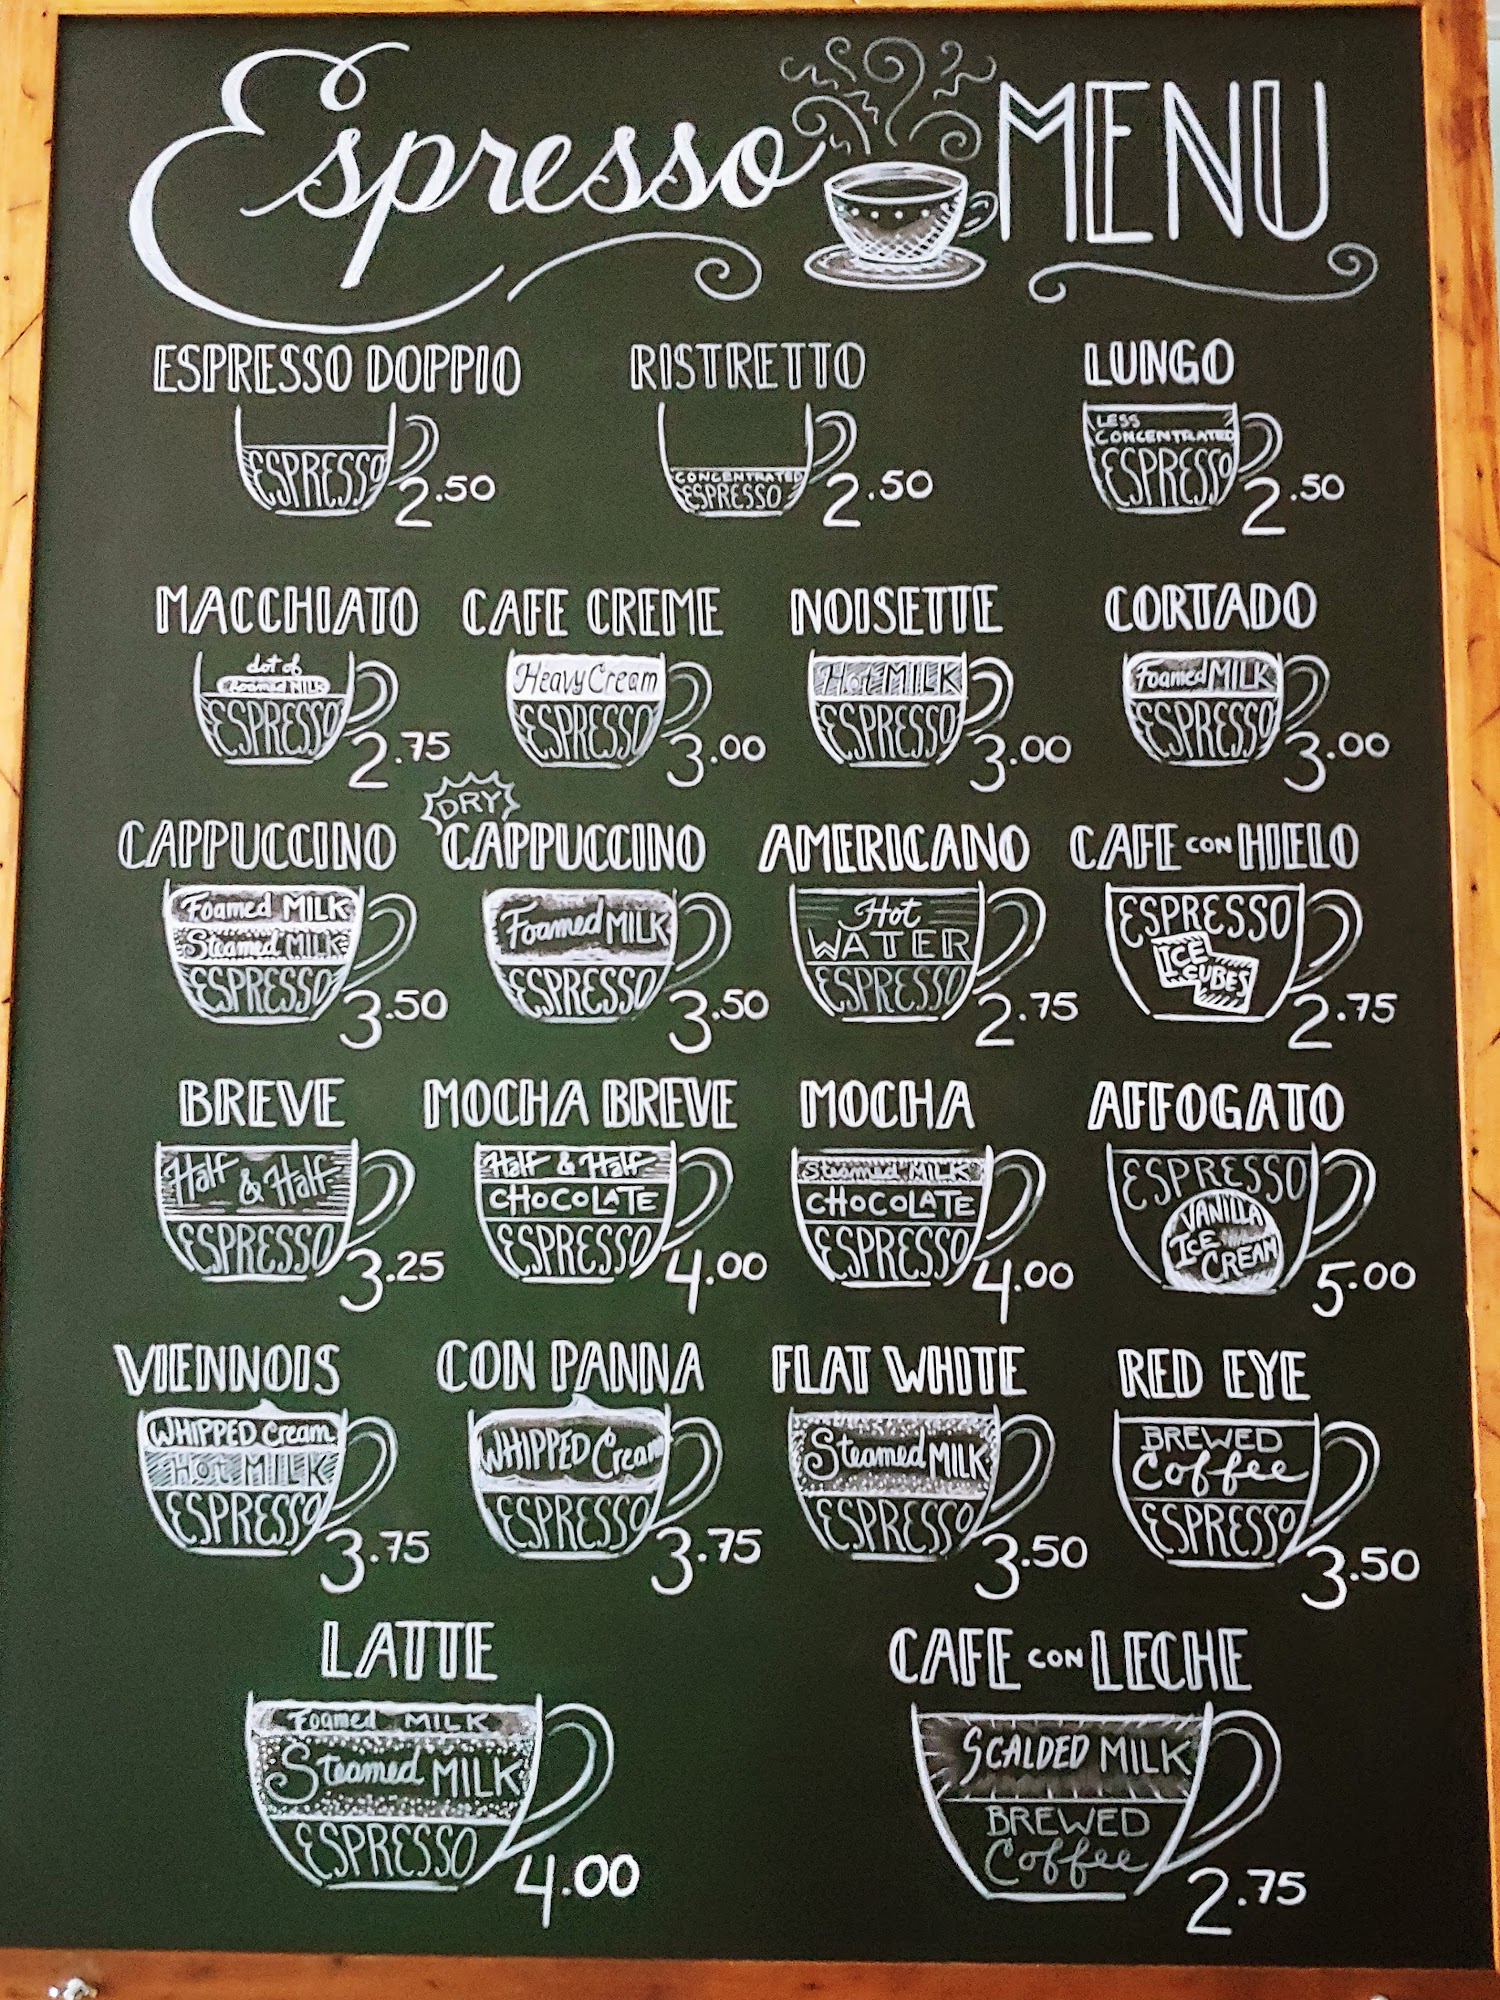 Espresso MENU
ESPRESSO DOPPIO
ESPRESSO
2.50
RISTRETTO
CONCENTRATED
ESPRESSO
2.50
LUNGO
LESS
CONCENTRATED
ESPRESSO
2.50
MACCHIATO
dot of
Foamed MILK
ESPRESSO
2.75
CAFE CREME
Heavy Cream
ESPRESSO
3.00
NOISETTE
Hot MILK
ESPRESSO
3.00
CORTADO
Foamed MILK
ESPRESSO
3.00
CAPPUCCINO
Foamed MILK
Steamed MILK
ESPRESSO
3.50
DRY
CAPPUCCINO
Foamed MILK
ESPRESSO
3.50
AMERICANO
Hot
WATER
ESPRESSO
2.75
CAFE CON HIELO
ESPRESSO
ICE
CUBES
2.75
BREVE
Half & Half
ESPRESSO
3.25
MOCHA BREVE
Half & Half
CHOCOLATE
ESPRESSO
4.00
MOCHA
Steamed MILK
CHOCOLATE
ESPRESSO
4.00
AFFOGATO
ESPRESSO
VANILLA
ICE
CREAM
5.00
VIENNOIS
WHIPPED Cream
Hot MILK
ESPRESSO
3.75
CON PANNA
WHIPPED Cream
ESPRESSO
3.75
FLAT WHITE
Steamed MILK
ESPRESSO
3.50
RED EYE
BREWED
Coffee
ESPRESSO
3.50
LATTE
Foamed MILK
Steamed MILK
ESPRESSO
4.00
CAFE CON LECHE
SCALDED MILK
BREWED
Coffee
2.75